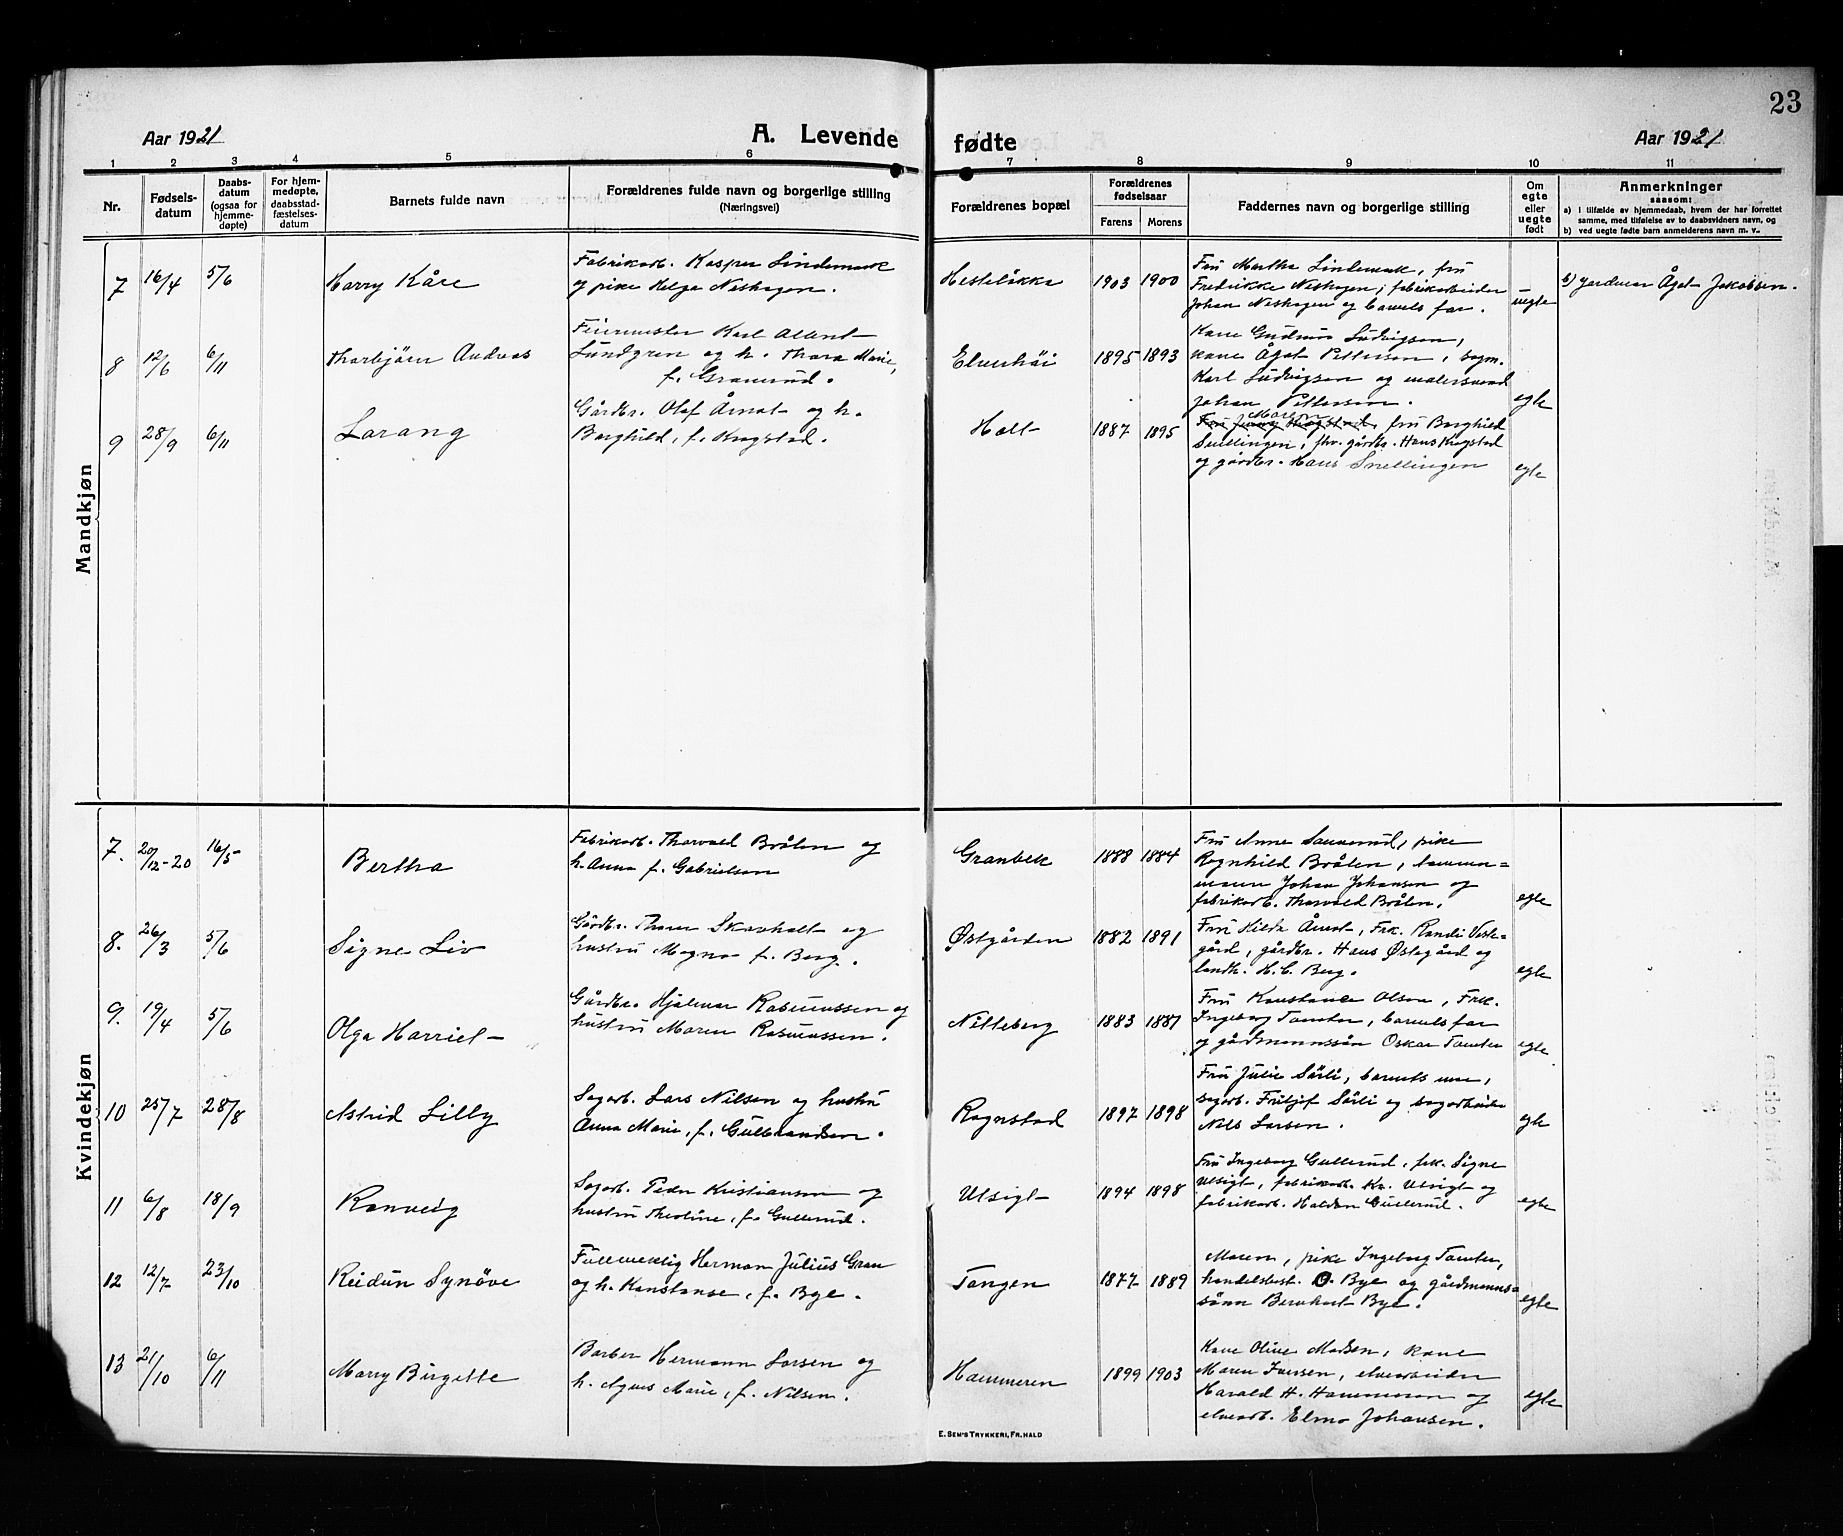 23
Aar 1921
A. Levende fødte
Aar 1921
1 2 3 4 5 6 7 8 9 10 11
Nr.
Fødsels-
datum
Daabs-
datum
(ogsaa for
hjemme-
døpte)
For hjem-
medøpte,
daabsstad-
fæstelses-
datum
Barnets fulde navn
Forældrenes fulde navn og borgerlige stilling
(Næringsvei)
Forældrenes bopæl
Forældrenes
fødselsaar
Farens Morens
Faddernes navn og borgerlige stilling
Om
egte
eller
uegte
født
Anmerkninger
saasom:
a) i tilfælde av hjemmedaab, hvem der har forrettet
samme, med tilføielse av to daabsvidners navn, og
b) ved uegte fødte barn anmelderens navn m. v..
Mandkjøn
7 16/4 5/6 Harry Kåre
Fabrikarb. Kasper Lindemark
og pike Helga Neshagen.
Hesteløkka 1903 1900
Fru Martha Lindemark, fru
Fredrikke Neshagen, fabrikarbeider
Johan Neshagen og barnets far.
uegte
b) Jordmor Ågot Jakobsen.
8 12/6 6/11 Thorbjørn Andreas
Feiermester Karl Albert
Lundgren og h. Thora Marie,
f. Gramrud.
Elverhøi 1895 1893
Kone Gudrun Ludvigsen,
kone Ågot Pettersen, sagm.
Karl Ludvigsen og malersvend
Johan Pettersen.
egte
9 28/9 6/11 Lorang
Gårdbr. Olaf Årnot og h.
Borghild, f. Krogstad.
Holt 1887 1895
Moren
Fru Jenny Krogstad, fru Borghild
Snellingen, fhv. gårdbr. Hans Krogstad
og gårdbr. Hans Snellingen
egte
Kvindekjøn
7. 20/12-20 16/5 Bertha
Fabrikarb. Thorvald Bråten og
h. Anna f. Gabrielsen
Granbek 1888 1884
Fru Anne Sannerud, pike
Ragnhild Bråten, tømmer-
mann Johan Johansen og
fabrikarb. Thorvald Bråten.
egte
8. 26/3 5/6 Signe Liv
Gårdbr. Thorer Skavhalt og
hustru Magna f. Berg.
Østgården 1882 1891
Fru Årnot, Frk. Randi Vest-
gård, gårdbr. Hans Østgård og
landh. H. C. Berg.
egte
9. 19/4 5/6 Olga Harriet
Gårdbr. Hjalmar Rasmussen og
hustru Maren Rasmussen.
Nitteberg 1883 1887
Fru Konstance Olsen, Frk.
Ingeborg Tomter, barnets far
og gårdmannssøn Oskar Tomter
egte
10 25/7 28/8 Astrid Lilly
Sagarb. Lars Nilsen og hustru
Anna Marie, f. Gulbrandsen.
Rognstad 1897 1898
Fru Julie Sørli, barnets mor,
sagarb. Fritjof Sørli og sagarbeider
Nils Larsen.
egte
11 6/8 18/9 Ranveig
Sagarb. Peder Kristiansen og
hustru Theoline, f. Gullerud.
Utsigt 1894 1898
Fru Ingeborg Gullerud, frk. Signe
Utsigt, fabrikarb. Kr. Utsigt og
fabrikarb. Haldan Gullerud.
egte
12 12/7 23/10 Reidun Synøve
Fullmektig Herman Julius Gran
og h. Konstanse, f. Bye.
Tangen 1877 1889
Moren, pike Ingeborg Tomter,
handelsbest. O. Bye og gårdmanns-
sønn Bernhart Bye.
egte
13 21/10 6/11 Marry Birgitte
Barber Hermann Larsen og
h. Agnes Marie, f. Nilsen.
Hammeren 1899 1903
Kone Olive Madsen, kone
Maren Iversen, elvearbeider
Harald H. Hammeren og
elvearb. Elmo Johansen.
egte
E. SEM'S TRYKKERI, FR.HALD